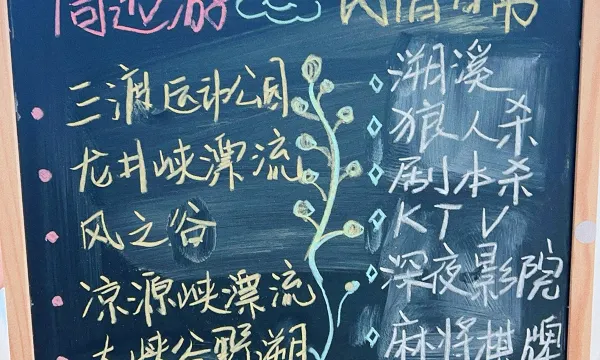 周边游
三瀬运动公园
龙井峡漂流
风之谷
凉源峡漂流
大峡谷野溯
溯溪
狼人杀
剧本杀
KTV
深夜影院
麻将棋牌